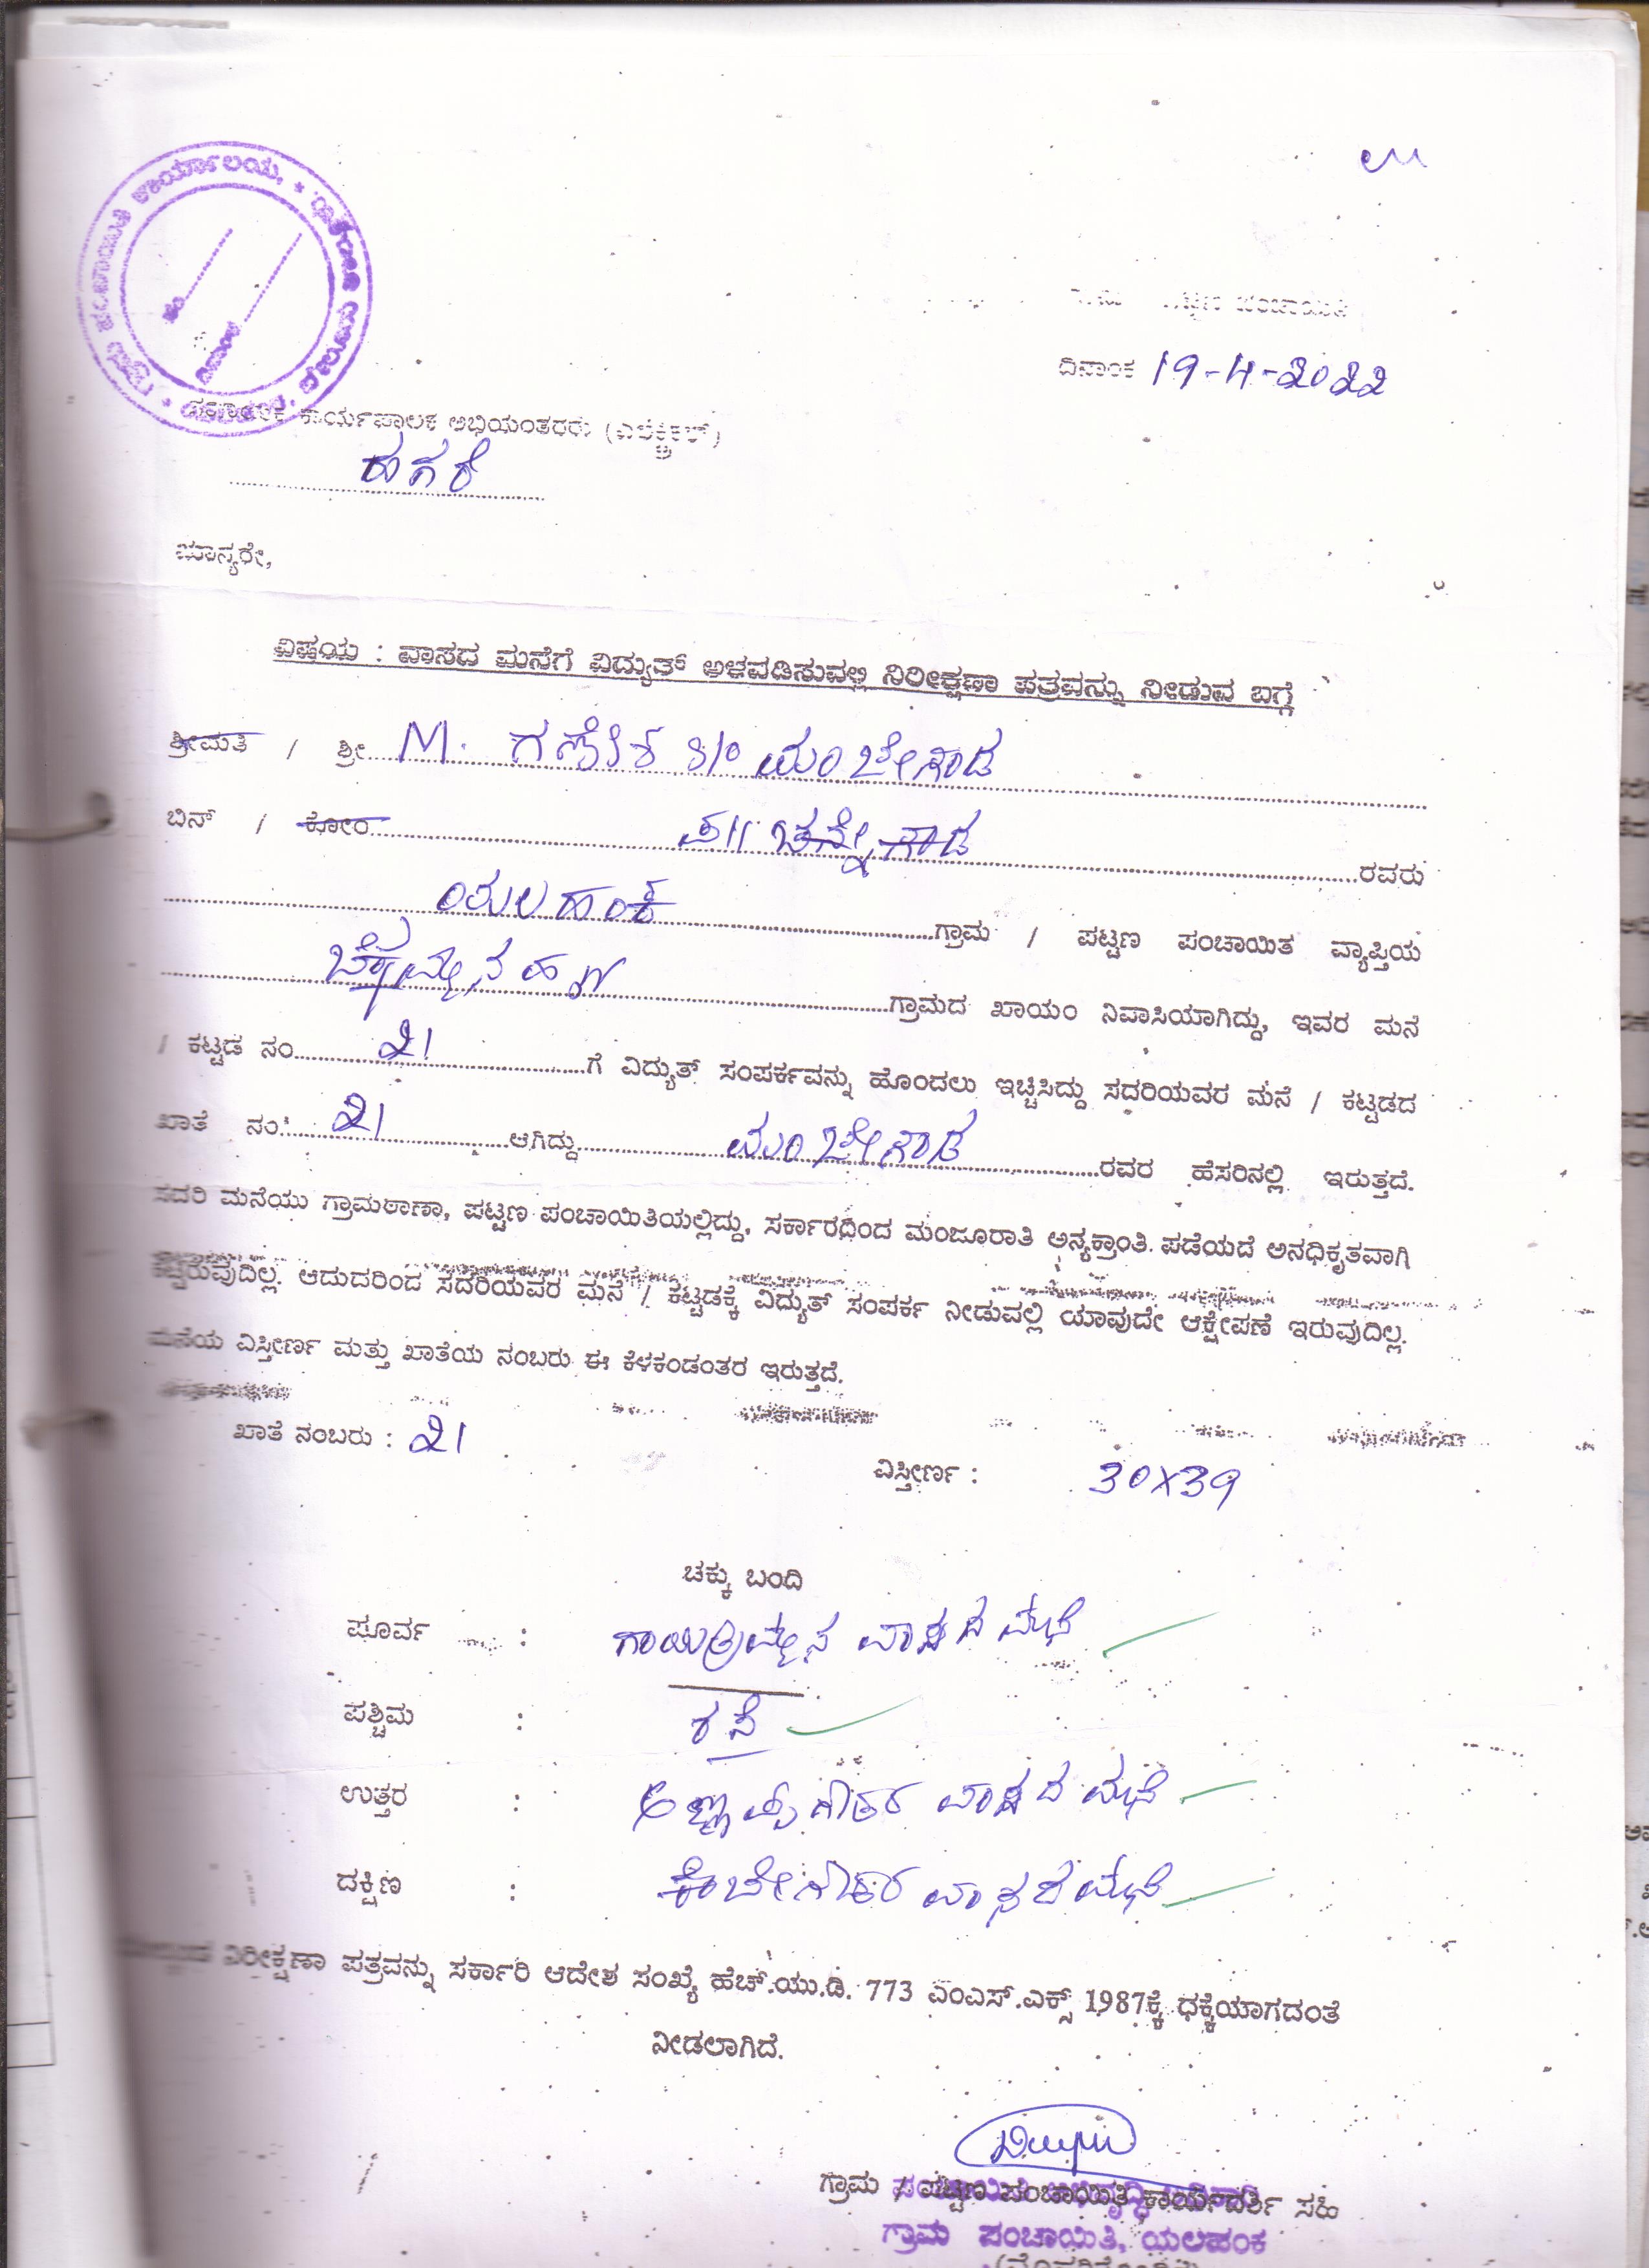 ದಿನಾಂಕ 19-4-2022
ಕಾರ್ಯಪಾಲಕ ಅಭಿಯಂತರರು (ಎಲೆಕ್ಟ್ರಿಕಲ್)
ಮಾನ್ಯರೇ,
ವಿಷಯ : ವಾಸದ ಮನೆಗೆ ವಿದ್ಯುತ್ ಅಳವಡಿಸುವಲ್ಲಿ ನಿರೀಕ್ಷಣಾ ಪತ್ರವನ್ನು ನೀಡುವ ಬಗ್ಗೆ
ಶ್ರೀಮತಿ / ಶ್ರೀ M. ಗಣೇಶ S/o ಮಂಚೇಗೌಡ
ಬಿನ್ / ಕೋಂ ಚನ್ನೇಗೌಡ ರವರು
ಯಲಹಂಕ ಗ್ರಾಮ / ಪಟ್ಟಣ ಪಂಚಾಯಿತ ವ್ಯಾಪ್ತಿಯ
ಗ್ರಾಮದ ಖಾಯಂ ನಿವಾಸಿಯಾಗಿದ್ದು, ಇವರ ಮನೆ
/ ಕಟ್ಟಡ ನಂ 21 ಗೆ ವಿದ್ಯುತ್ ಸಂಪರ್ಕವನ್ನು ಹೊಂದಲು ಇಚ್ಚಿಸಿದ್ದು ಸದರಿಯವರ ಮನೆ / ಕಟ್ಟಡದ
ಖಾತೆ ನಂ. 21 ಆಗಿದ್ದು ಮಂಚೇಗೌಡ ರವರ ಹೆಸರಿನಲ್ಲಿ ಇರುತ್ತದೆ.
ಸದರಿ ಮನೆಯು ಗ್ರಾಮಠಾಣಾ, ಪಟ್ಟಣ ಪಂಚಾಯಿತಿಯಲ್ಲಿದ್ದು, ಸರ್ಕಾರದಿಂದ ಮಂಜೂರಾತಿ ಅನ್ಯಕ್ರಾಂತಿ ಪಡೆಯದೆ ಅನಧಿಕೃತವಾಗಿ
ಕಟ್ಟಿರುವುದಿಲ್ಲ. ಆದುದರಿಂದ ಸದರಿಯವರ ಮನೆ / ಕಟ್ಟಡಕ್ಕೆ ವಿದ್ಯುತ್ ಸಂಪರ್ಕ ನೀಡುವಲ್ಲಿ ಯಾವುದೇ ಆಕ್ಷೇಪಣೆ ಇರುವುದಿಲ್ಲ.
ಮನೆಯ ವಿಸ್ತೀರ್ಣ ಮತ್ತು ಖಾತೆಯ ನಂಬರು ಈ ಕೆಳಕಂಡಂತರ ಇರುತ್ತದೆ.
ಖಾತೆ ನಂಬರು : 21
ವಿಸ್ತೀರ್ಣ : 30X39
ಚಕ್ಕು ಬಂದಿ
ಪೂರ್ವ : ವಾಸದ ಮನೆ
ಪಶ್ಚಿಮ : ರಸೆ
ಉತ್ತರ : ವಾಸದ ಮನೆ
ದಕ್ಷಿಣ : ವಾಸದ ಮನೆ
ನಿರೀಕ್ಷಣಾ ಪತ್ರವನ್ನು ಸರ್ಕಾರಿ ಆದೇಶ ಸಂಖ್ಯೆ ಹೆಚ್.ಯು.ಡಿ. 773 ಎಂಎಸ್.ಎಕ್ಸ್ 1987ಕ್ಕೆ ಧಕ್ಕೆಯಾಗದಂತೆ
ನೀಡಲಾಗಿದೆ.
ಗ್ರಾಮ / ಪಟ್ಟಣ ಪಂಚಾಯಿತಿ ಕಾರ್ಯದರ್ಶಿ ಸಹಿ
ಗ್ರಾಮ ಪಂಚಾಯಿತಿ, ಯಲಹಂಕ